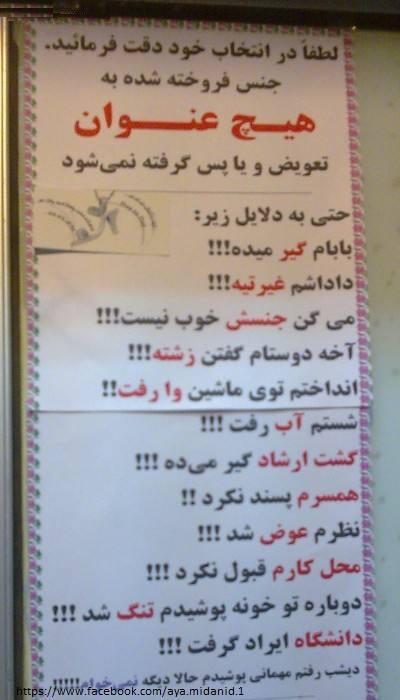 لطفاً در انتخاب خود دقت فرمائید.
جنس فروخته شده به
هیـچ عنـــوان
تعویض و یا پس گرفته نمی‌شود
حتی به دلایل زیر:
بابام گیر میده!!!
داداشم غیرتیه!!!
می گن جنسش خوب نیست!!!
آخه دوستام گفتن زشته!!!
انداختم توی ماشین وا رفت!!
شستم آب رفت !!!
گشت ارشاد گیر می‌ده !!!
همسرم پسند نکرد !!
نظرم عوض شد !!!
محل کارم قبول نکرد !!!
دوباره تو خونه پوشیدم تنگ شد !!!
دانشگاه ایراد گرفت !!!
دیشب رفتم مهمانی پوشیدم حالا دیگه نمی‌خوام!!!!!
https://www.facebook.com/aya.midanid.1